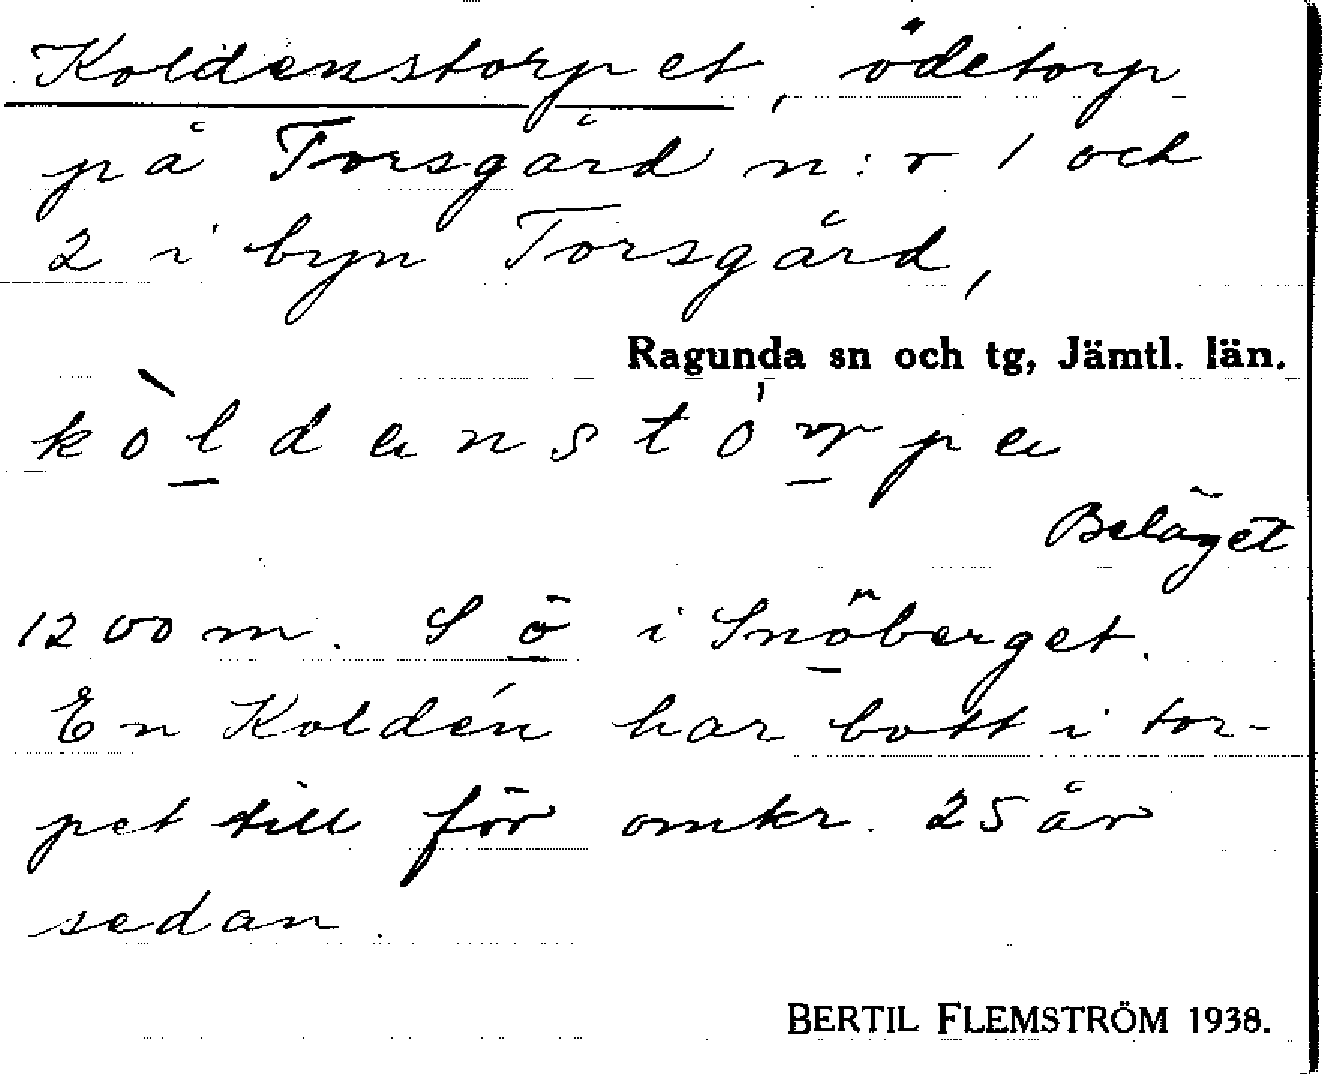 Koldenstorpet, ödetorp
på Torsgård n:r 1 och
2 i byn Torsgård,
Ragunda sn och tg, Jämtl. län.
Beläget
1200 m. S ö i Snöberget.
En Koldén har bott i tor-
pet till för omkr. 25 år
sedan.
BERTIL FLEMSTRÖM 1938.